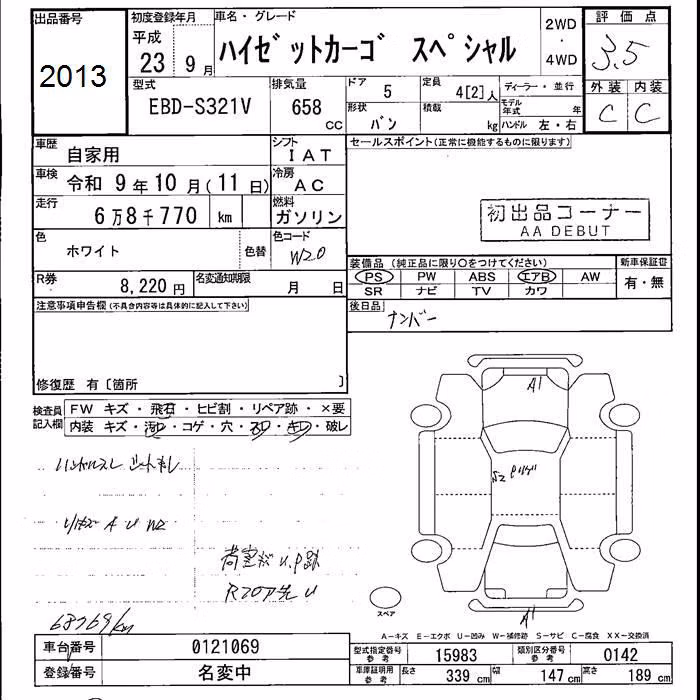 出品番号
2013
初度登録年月
平成
23 9月
車名・グレード
ハイゼットカーゴ スペシャル
2WD
・
4WD
評価点
3.5
外装 内装
C C
型式
EBD-S321V
排気量
658
CC
ドア 5
形状 バン
定員 4[2]人
積載 kg
ディーラー・並行
モデル年式 年
ハンドル 左・右
車歴 自家用
シフト IAT
車検 令和 9年 10月(11日)
冷房 AC
走行 6万8千770 km
燃料 ガソリン
色 ホワイト 色替
色コード W20
R券 8,220円
名変通知期限 月 日
セールスポイント(正常に機能するものに限ります)
初出品コーナー
AA DEBUT
装備品(純正品に限り○をつけてください)
PS PW ABS エアB AW
SR ナビ TV カワ
新車保証書
有・無
後日品
ナンバー
注意事項申告欄(不具合内容等は具体的に記入して下さい)
修復歴 有〔箇所 〕
検査員記入欄
FW キズ・飛石・ヒビ割・リペア跡・×要
内装 キズ・汚D・コゲ・穴・スD・キD・破レ
ハンドルスレ シートスレ
A U W2
U,P跡
68769km
A1
S2
A1
スペア
A−キズ E−エクボ U−凹み W−補修跡 S−サビ C−腐食 XX−交換済
車台番号 0121069
登録番号 名変中
型式指定番号 参考 15983
類別区分番号 参考 0142
車庫証明用 参考 長さ 339cm 幅 147cm 高さ 189cm